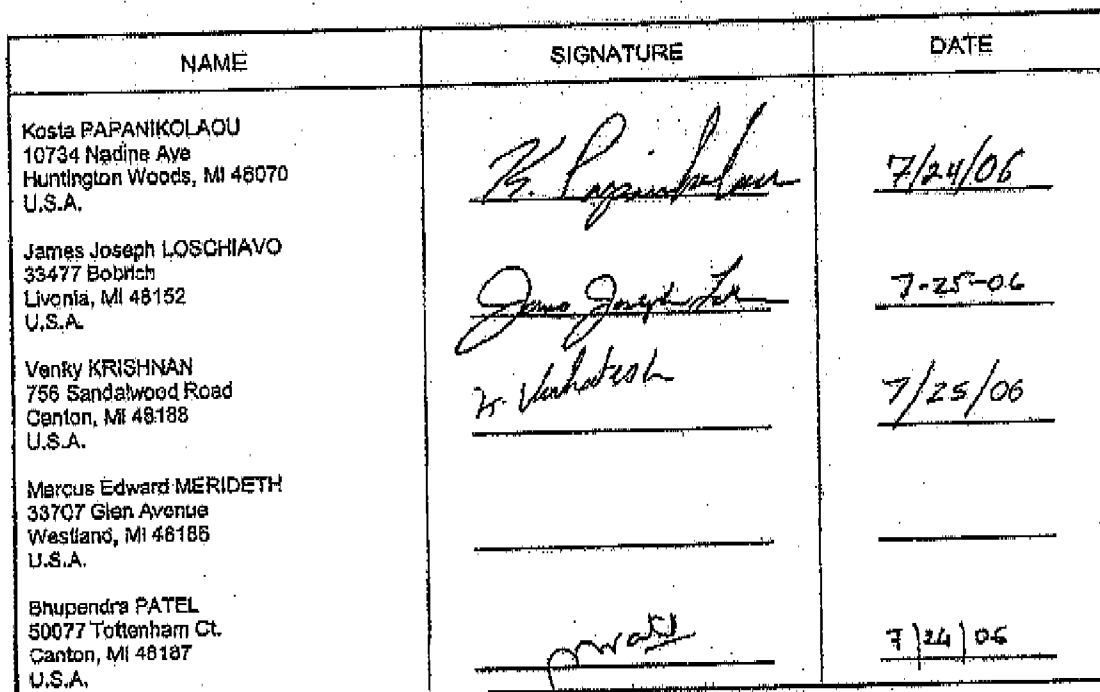 NAME SIGNATURE DATE
Kosta PAPANIKOLAOU
10734 Nadine Ave
Huntington Woods, MI 48070
U.S.A.
K. Papanikolaou 7/24/06
James Joseph LOSCHIAVO
33477 Bobrich
Livonia, MI 48152
U.S.A.
James Joseph 7-25-06
Venky KRISHNAN
756 Sandalwood Road
Canton, MI 48188
U.S.A.
K. Venkatesh 7/25/06
Marcus Edward MERIDETH
33707 Glen Avenue
Westland, MI 48186
U.S.A.
Bhupendra PATEL
50077 Tottenham Ct.
Canton, MI 48187
U.S.A.
7/24/06